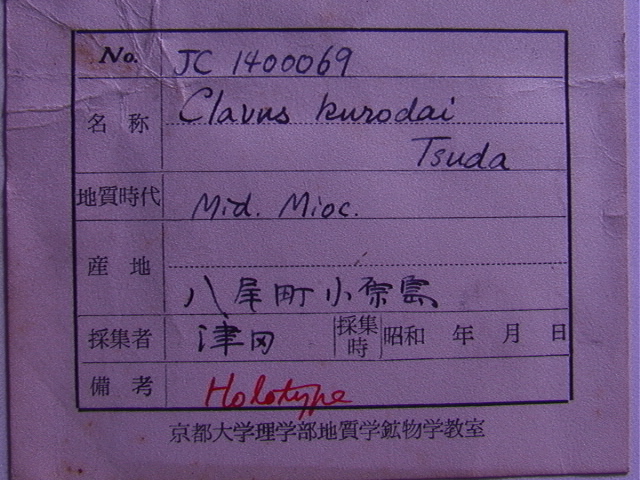 No. JC 1400069
名称 Clavus kurodai
Tsuda
地質時代 Mid. Mioc.
産地
八尾町小原島
採集者 津田 採集時 昭和 年 月 日
備考 Holotype
京都大学理学部地質学鉱物学教室